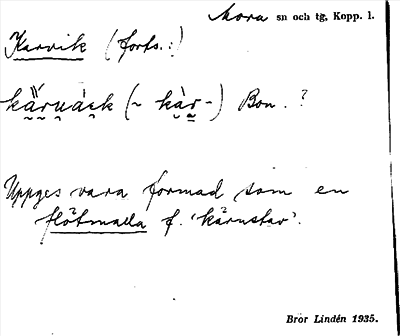 Mora sn och tg, Kopp. l.
Karvik (forts.:)
Bon. ?
Uppges vara formad som en
flötmalla f. 'kärnstav'.
Bror Lindén 1935.